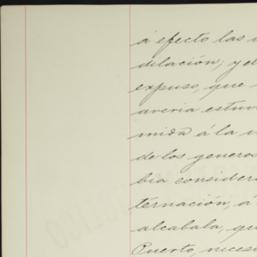 á efecto las
dilación; y el
expuso, que
averia estuv
mida á la u
de los generos
bia consider
ternación, á
alcabala, qu
Puerto, neces